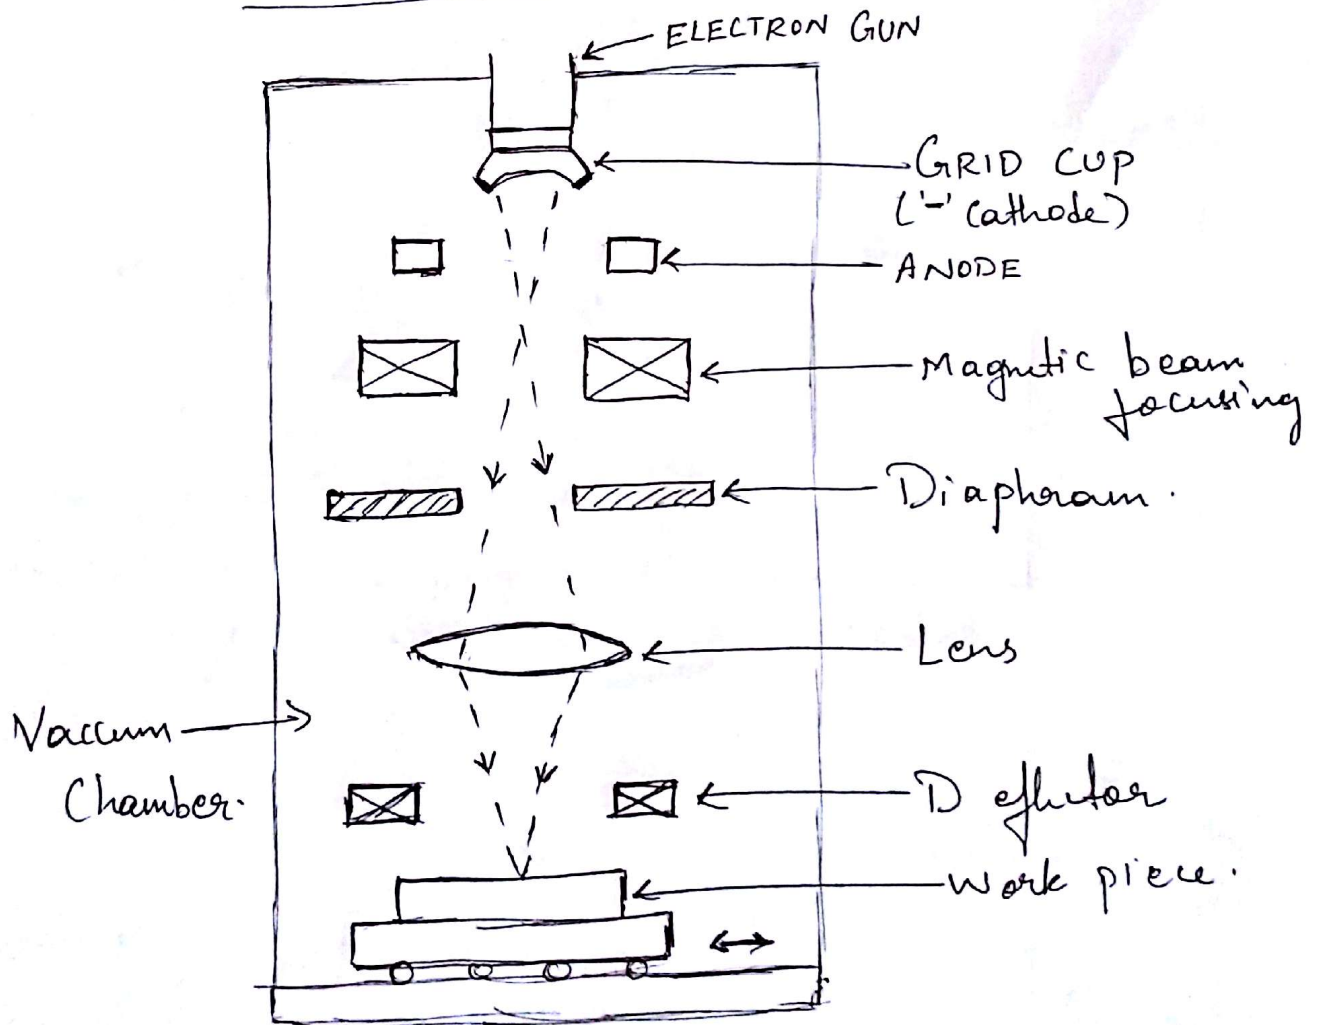 ELECTRON GUN
GRID CUP
('-' Cathode)
ANODE
Magnetic beam
focusing
Diaphram.
Lens
Vaccum
Chamber.
Deflector
Work piece.